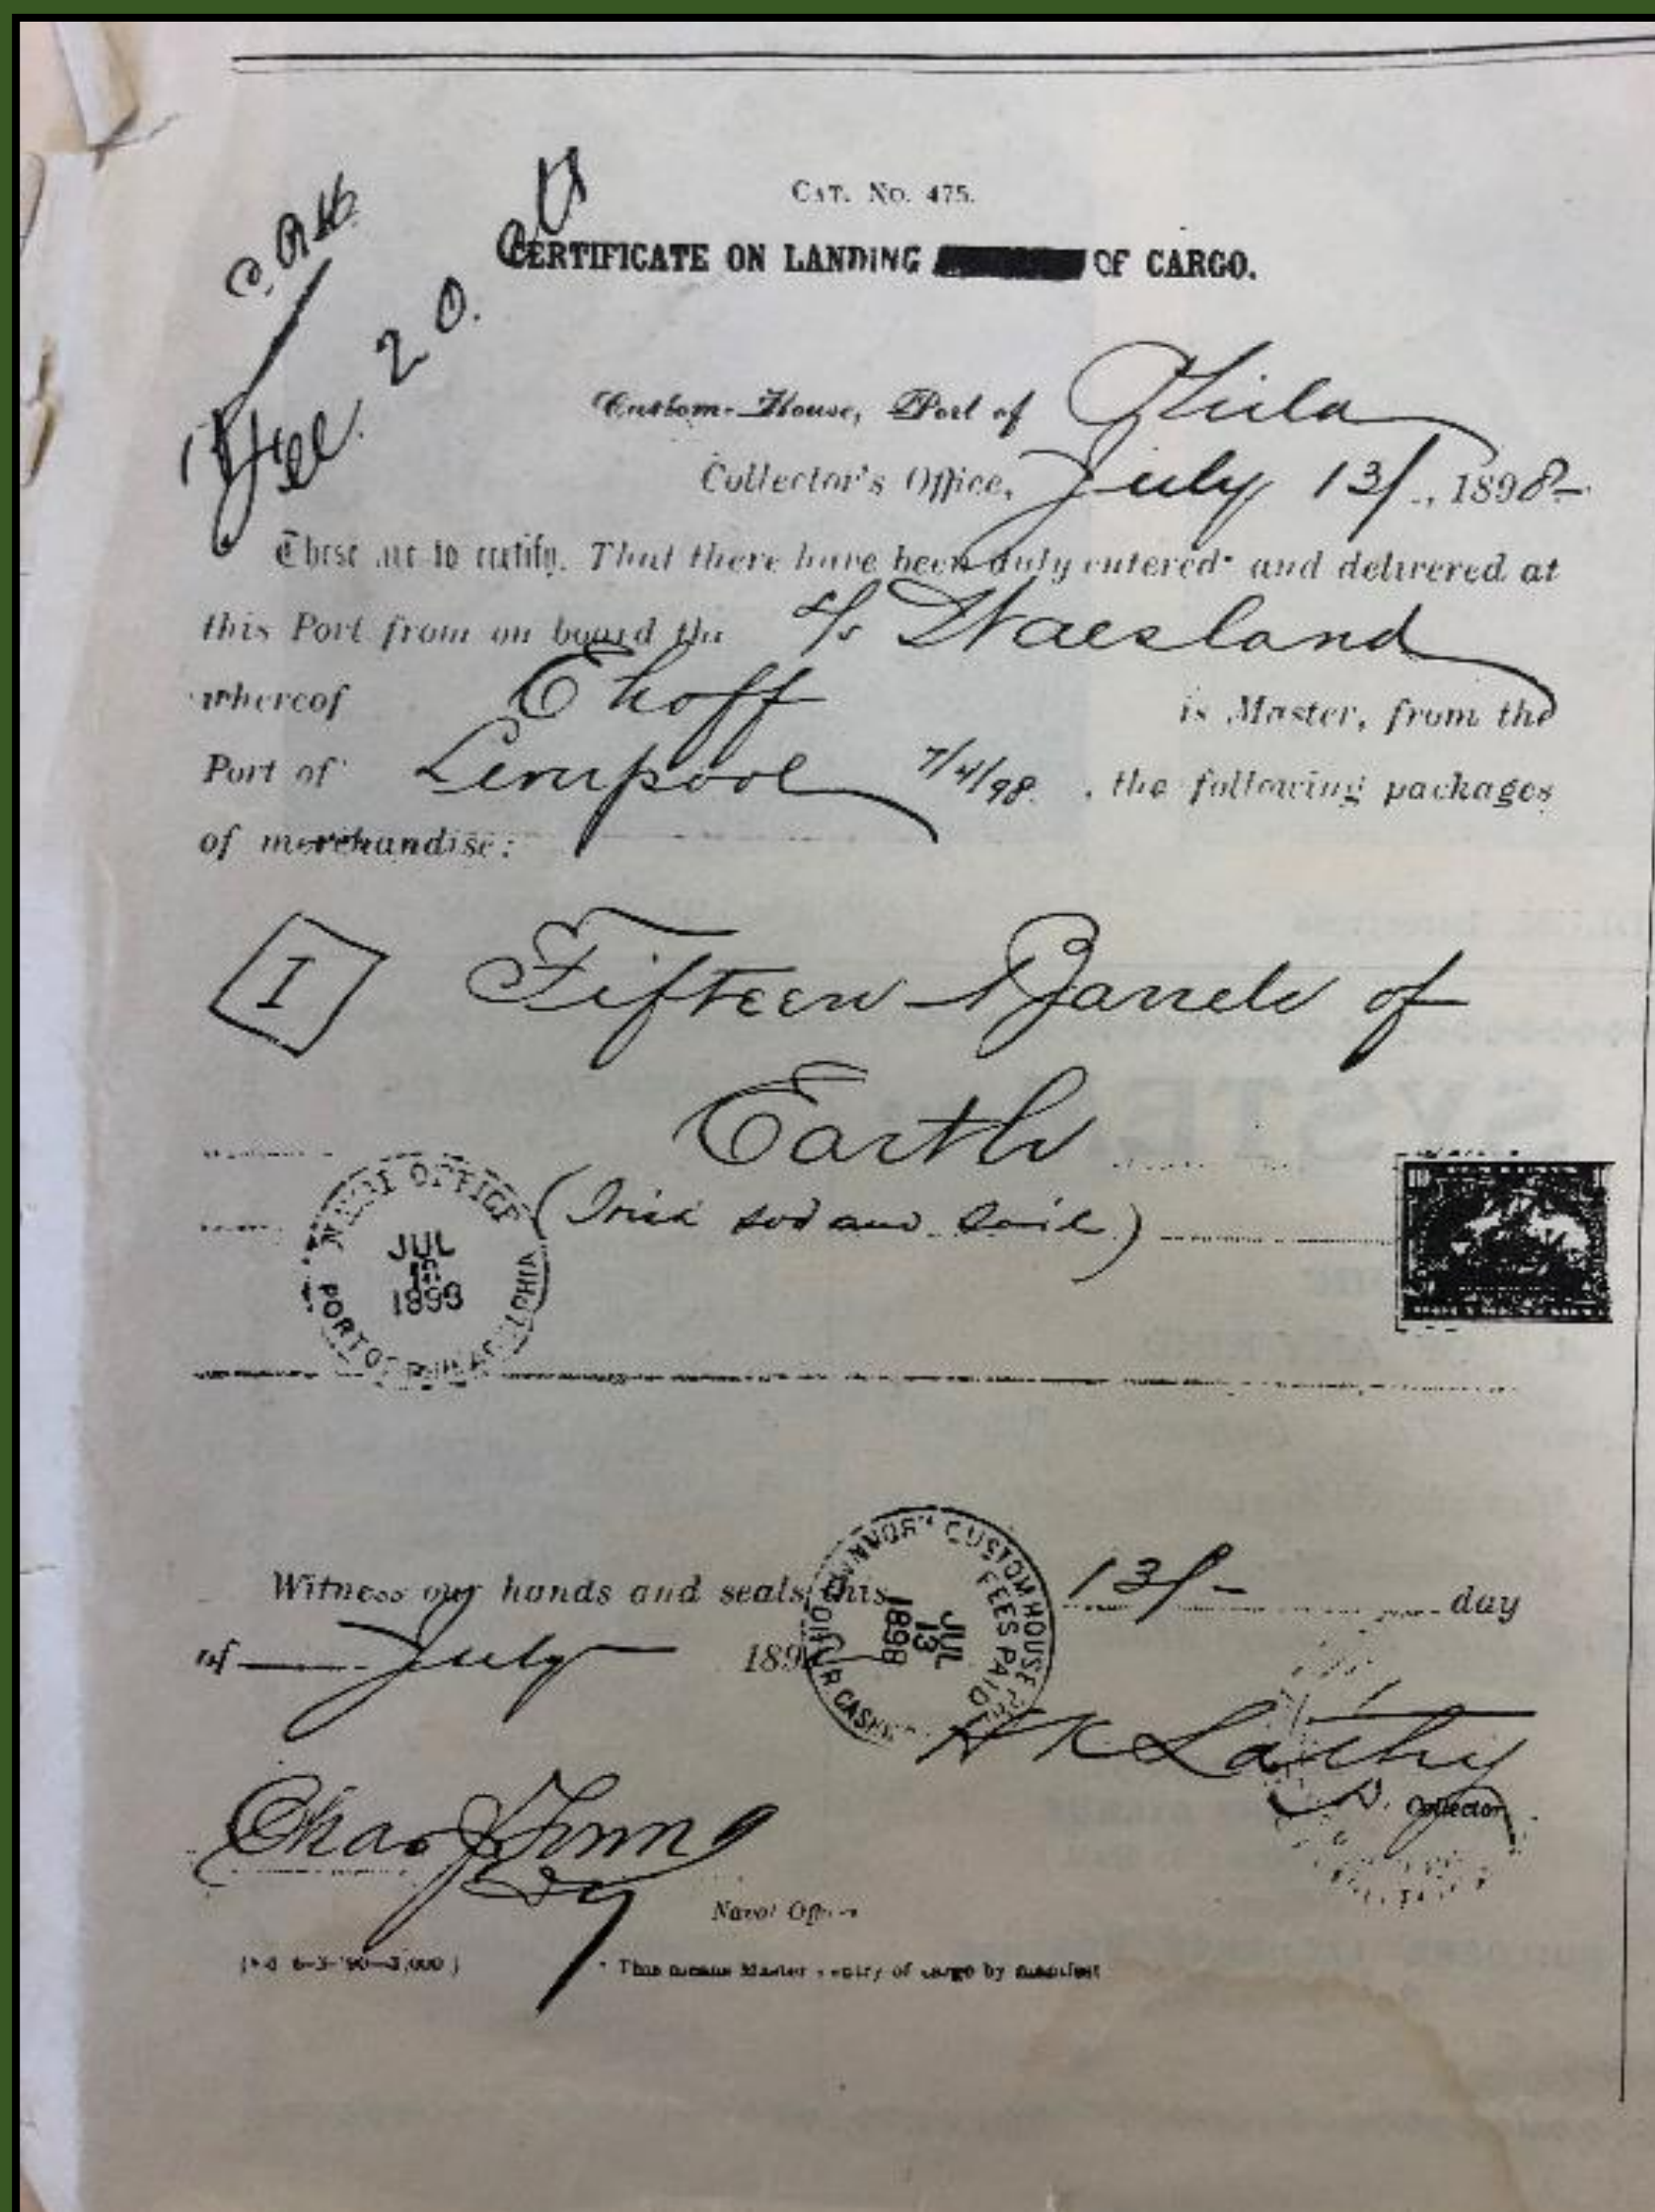 CAT. NO. 475.
CERTIFICATE ON LANDING OF CARGO.
20. cts
Custom-House, Port of Phila
Collector's Office, July 13/, 1898
These are to certify, That there have been duly entered* and delivered at
this Port from on board the s/s Waesland
whereof Ehoff is Master, from the
Port of Liverpool 7/4/98. , the following packages
of merchandise:
I Fifteen Barrels of
Earth
(Irish sod and soil)
NAVAL OFFICE
JUL
1898
PORT OF PHILADELPHIA
CUSTOM HOUSE
FEES PAID
JUL
13
1898
Witness our hands and seals, this 13/- day
of July 189
H K Lathy
D. Collector
Chas
Dy
Naval Officer
* This means Master's entry of cargo by manifest